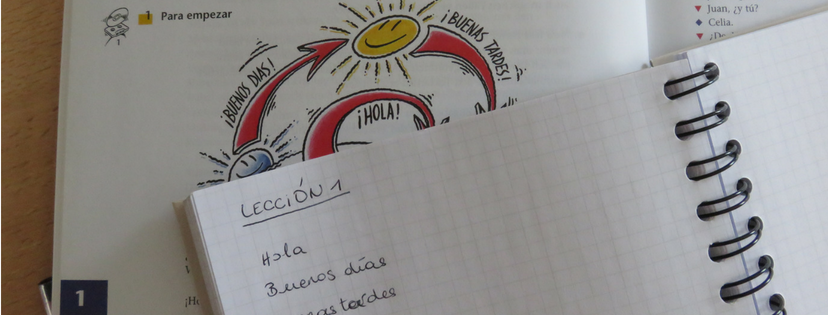 1 Para empezar
1
Juan, ¿y tú?
Celia.
¡BUENOS DÍAS!
¡BUENAS TARDES!
¡HOLA!
LECCIÓN 1
Hola
Buenos días
tardes
1